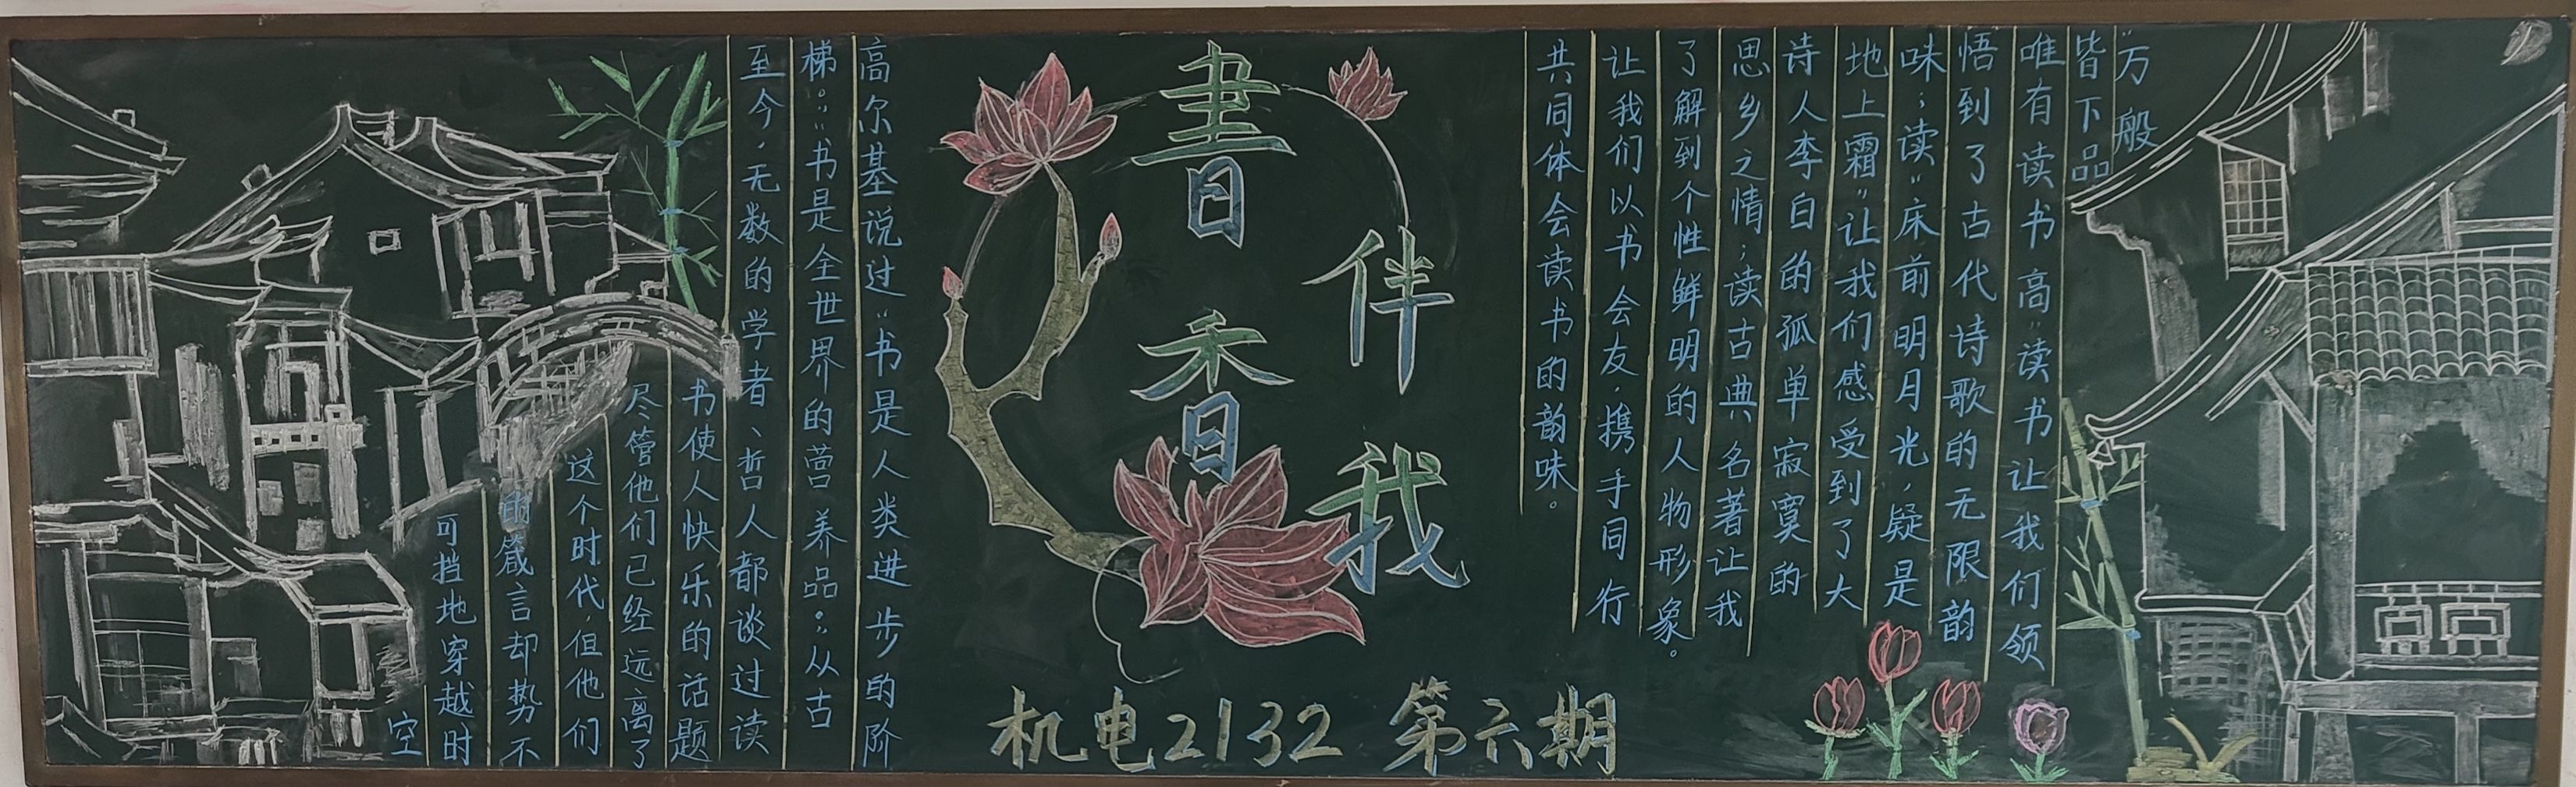 書香
伴我
机电2132 第六期
“万般
皆下品
唯有读书高”读书让我们领
悟到了古代诗歌的无限韵
味；读“床前明月光，疑是
地上霜”让我们感受到了大
诗人李白的孤单寂寞的
思乡之情；读古典名著让我
了解到个性鲜明的人物形象。
让我们以书会友，携手同行
共同体会读书的韵味。
高尔基说过“书是人类进步的阶
梯。”“书是全世界的营养品。”从古
至今，无数的学者、哲人都谈过读
书使人快乐的话题
尽管他们已经远离了
这个时代，但他们
箴言却势不
可挡地穿越时
空